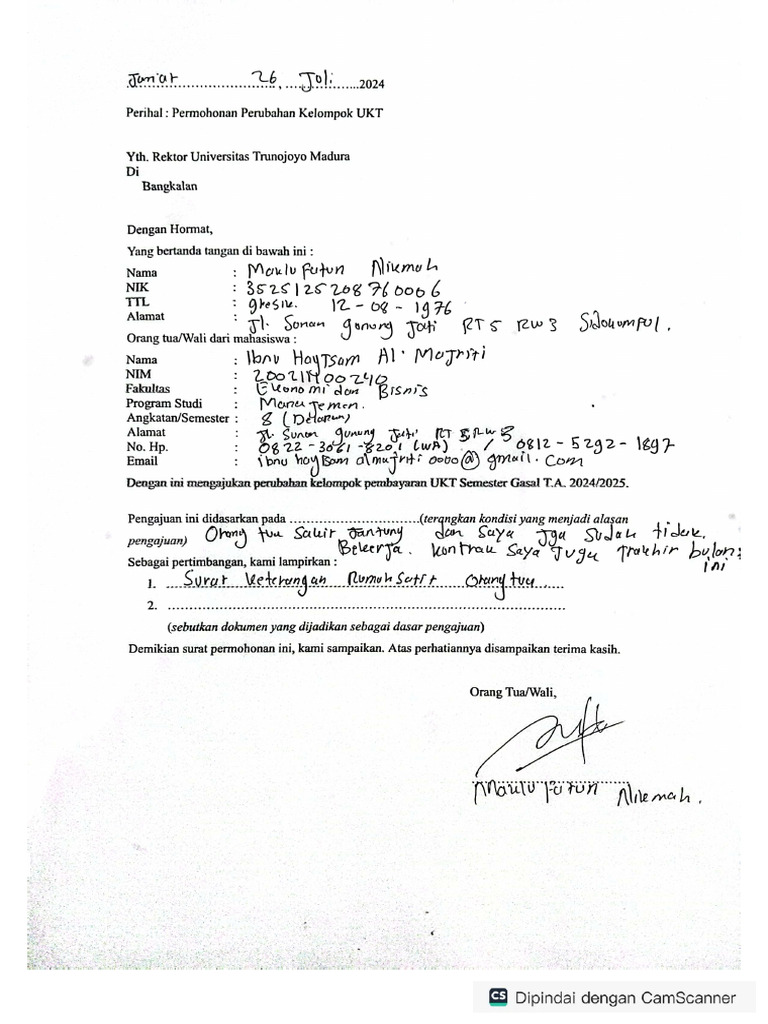 Jum'at 26, Juli 2024
Perihal : Permohonan Perubahan Kelompok UKT
Yth. Rektor Universitas Trunojoyo Madura
Di
Bangkalan
Dengan Hormat,
Yang bertanda tangan di bawah ini :
Nama : Maulu fatun Nikmah
NIK : 3525125208760006
TTL : gresik. 12-08-1976
Alamat : Jl. Sunan gunung Jati RT 5 RW 3 Sidokumpul.
Orang tua/Wali dari mahasiswa :
Nama : Ibnu Haytsam Al. Majriti
NIM :
Fakultas : Ekonomi dan Bisnis
Program Studi : Manajemen.
Angkatan/Semester : 8 (Delapan)
Alamat : Jl. Sunan gunung Jati RT 5 RW 3
No. Hp. : 0822-3061-8201 (WA) / 0812-5292-1897
Email : ibnu haytsam almajriti 0000@gmail.com
Dengan ini mengajukan perubahan kelompok pembayaran UKT Semester Gasal T.A. 2024/2025.
Pengajuan ini didasarkan pada ..............................(terangkan kondisi yang menjadi alasan
pengajuan) Orang tua Sakit Jantung dan Saya Jga Sudah tidak
Bekerja. kontrak Saya Juga Trakhir bulan
ini
Sebagai pertimbangan, kami lampirkan :
1. Surat keterangan Rumah Sakit Orang tua
2. ..............................
(sebutkan dokumen yang dijadikan sebagai dasar pengajuan)
Demikian surat permohonan ini, kami sampaikan. Atas perhatiannya disampaikan terima kasih.
Orang Tua/Wali,
Maulu fatun Nikmah.
CS Dipindai dengan CamScanner